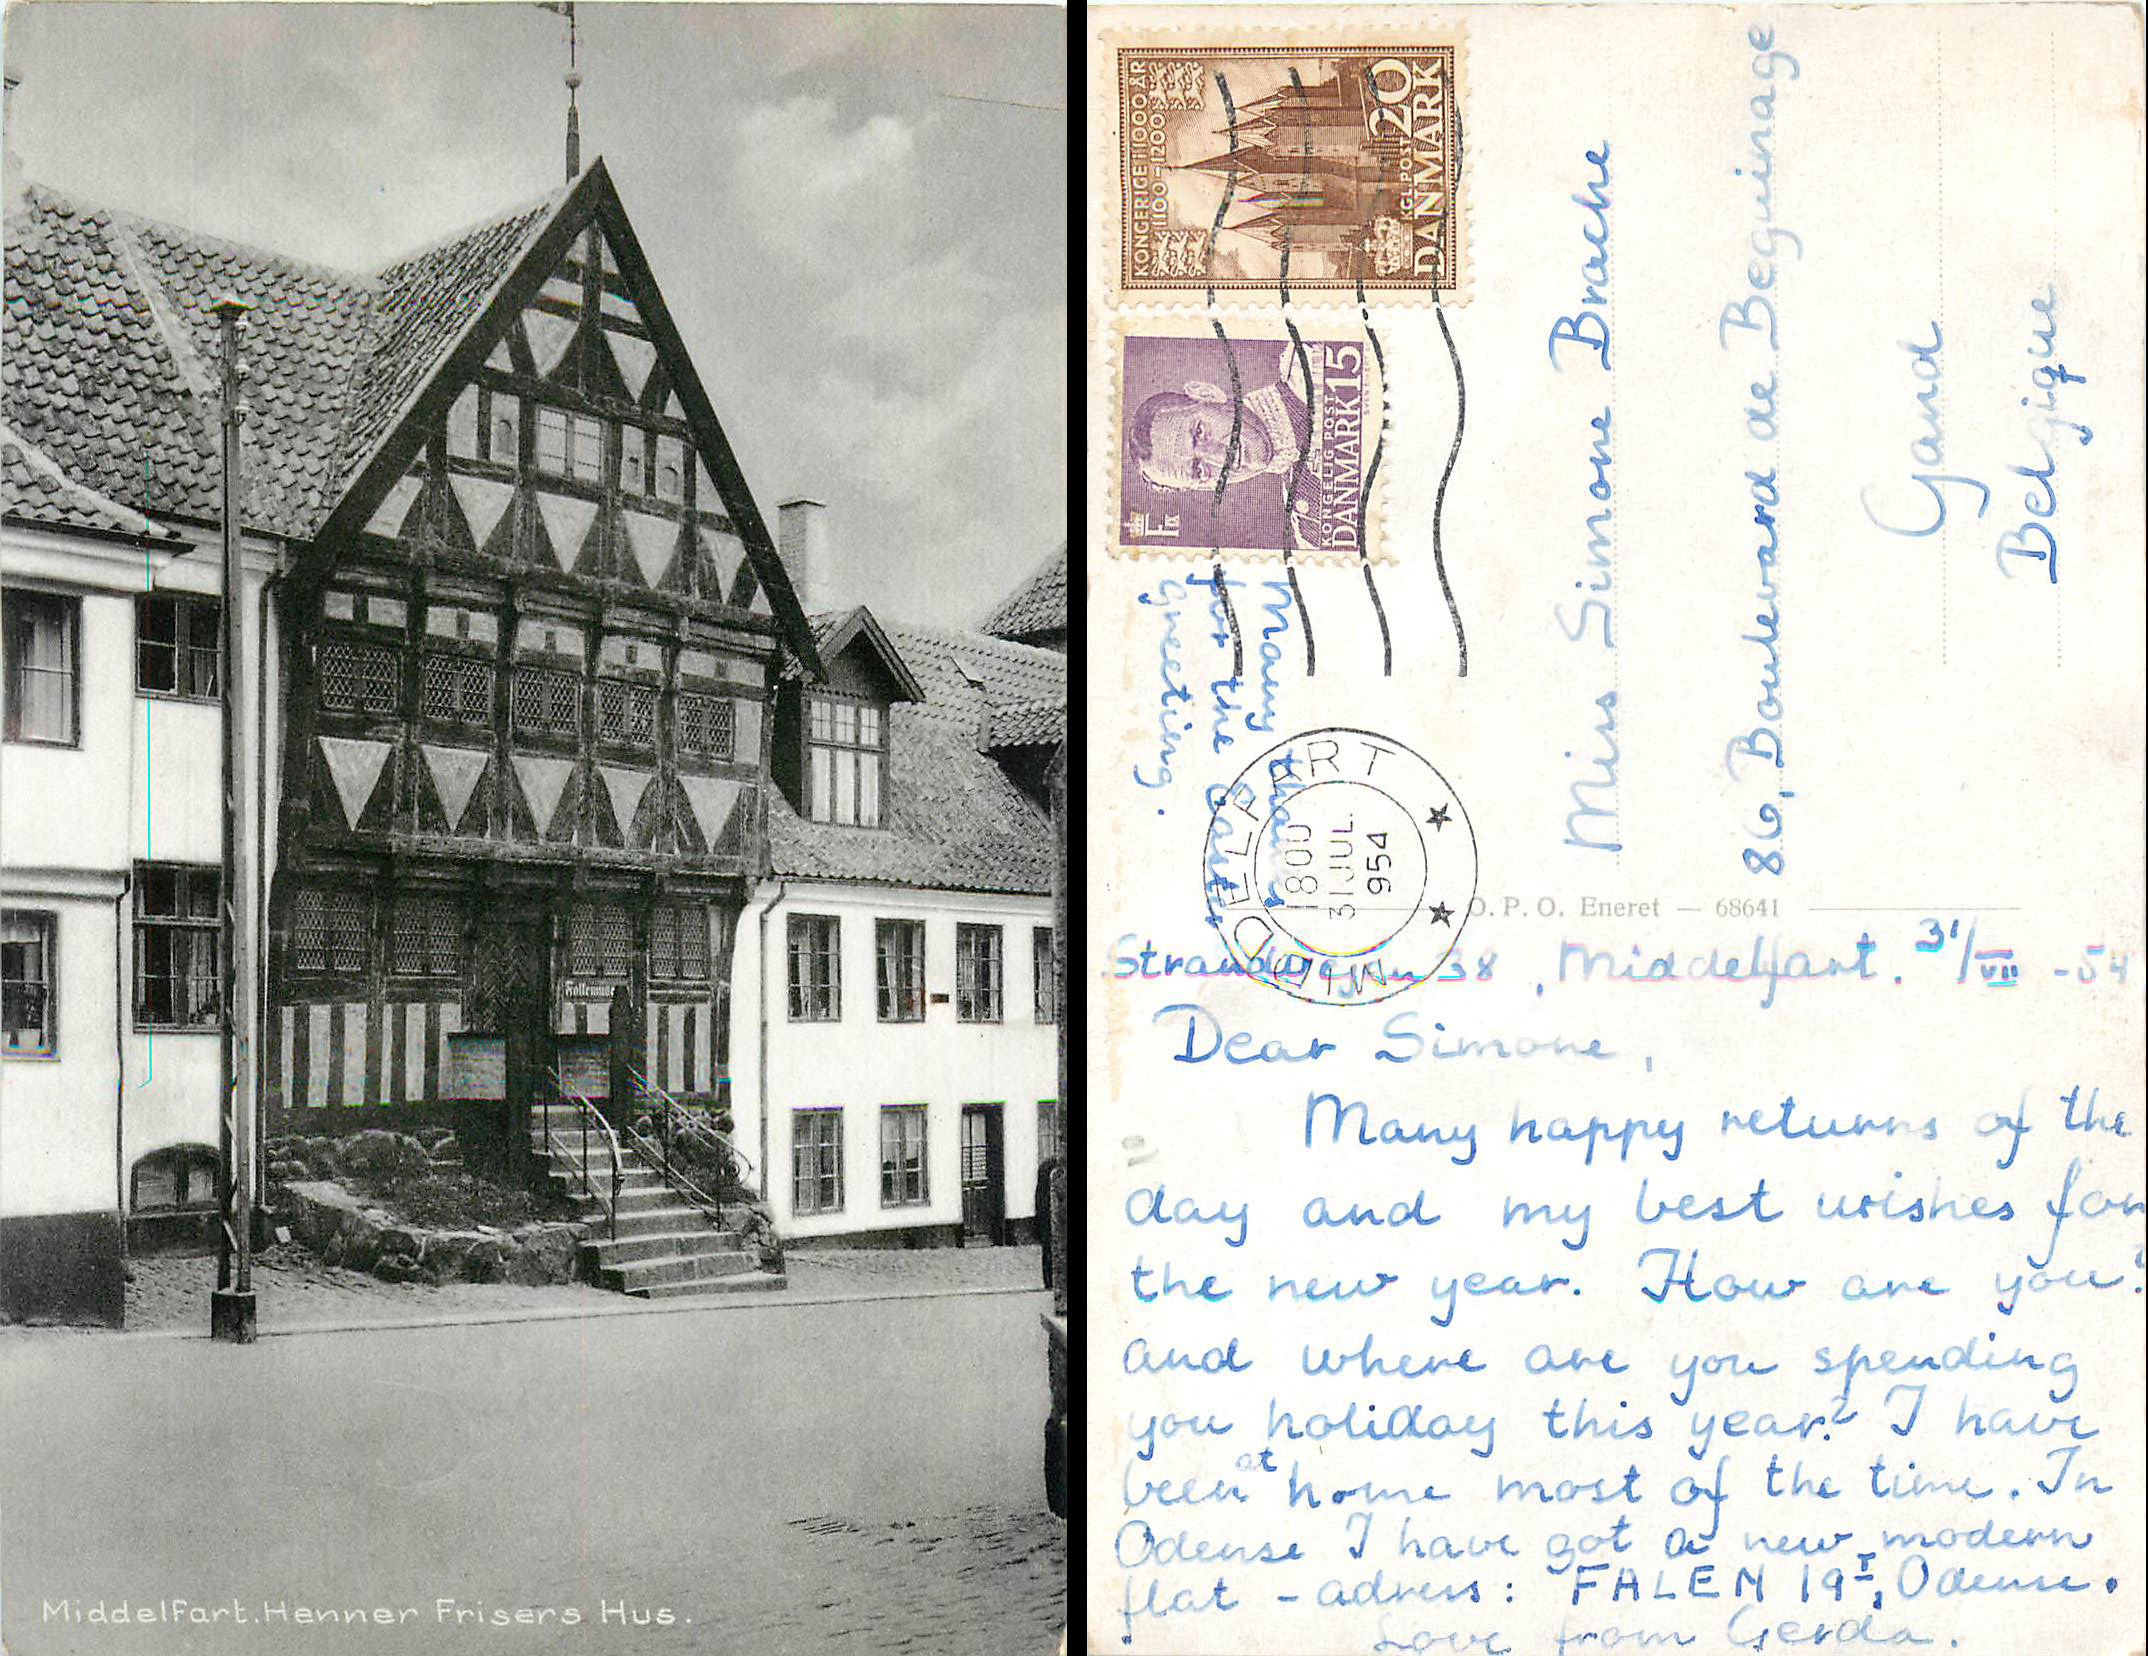 Folkemuseum
Middelfart. Henner Frisers Hus.
KONGERIGE I 1000 ÅR
1100-1200
KGL. POST 20
DANMARK
KONGELIG POST
DANMARK 15
MIDDELFART
1800
31 JUL.
954
Miss Simone Brache
86, Boulevard de Beguinage
Gand
Belgique
Many thanks
for the Easter
greeting.
O. P. O. Eneret — 68641
Strandvejen 38, Middelfart. 31/VII -54
Dear Simone,
Many happy returns of the
day and my best wishes for
the new year. How are you?
and where are you spending
you holiday this year? I have
been at home most of the time. In
Odense I have got a new modern
flat - adress: FALEN 19 I, Odense.
Love from Gerda.